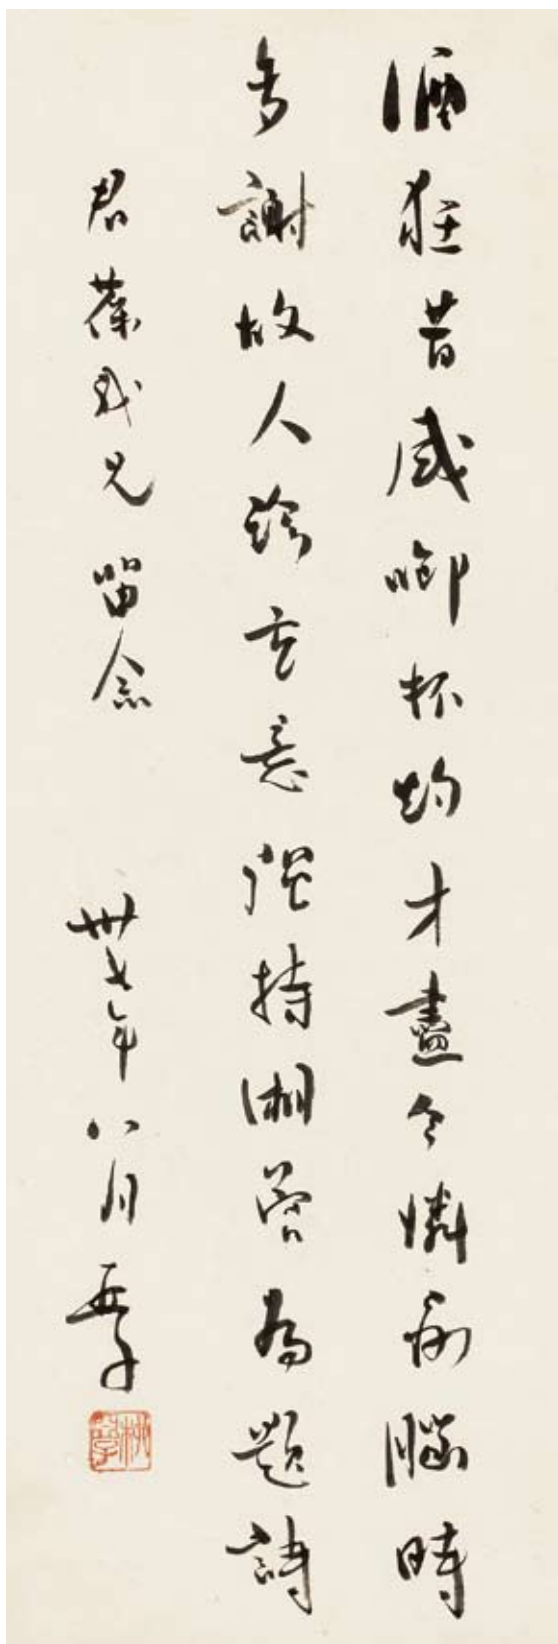 酒狂昔感啣杯灼才盡今憐刻腦時
多謝故人珍重意強持湘管為題詩
君葆我兄 留念 卅七年八月亞子